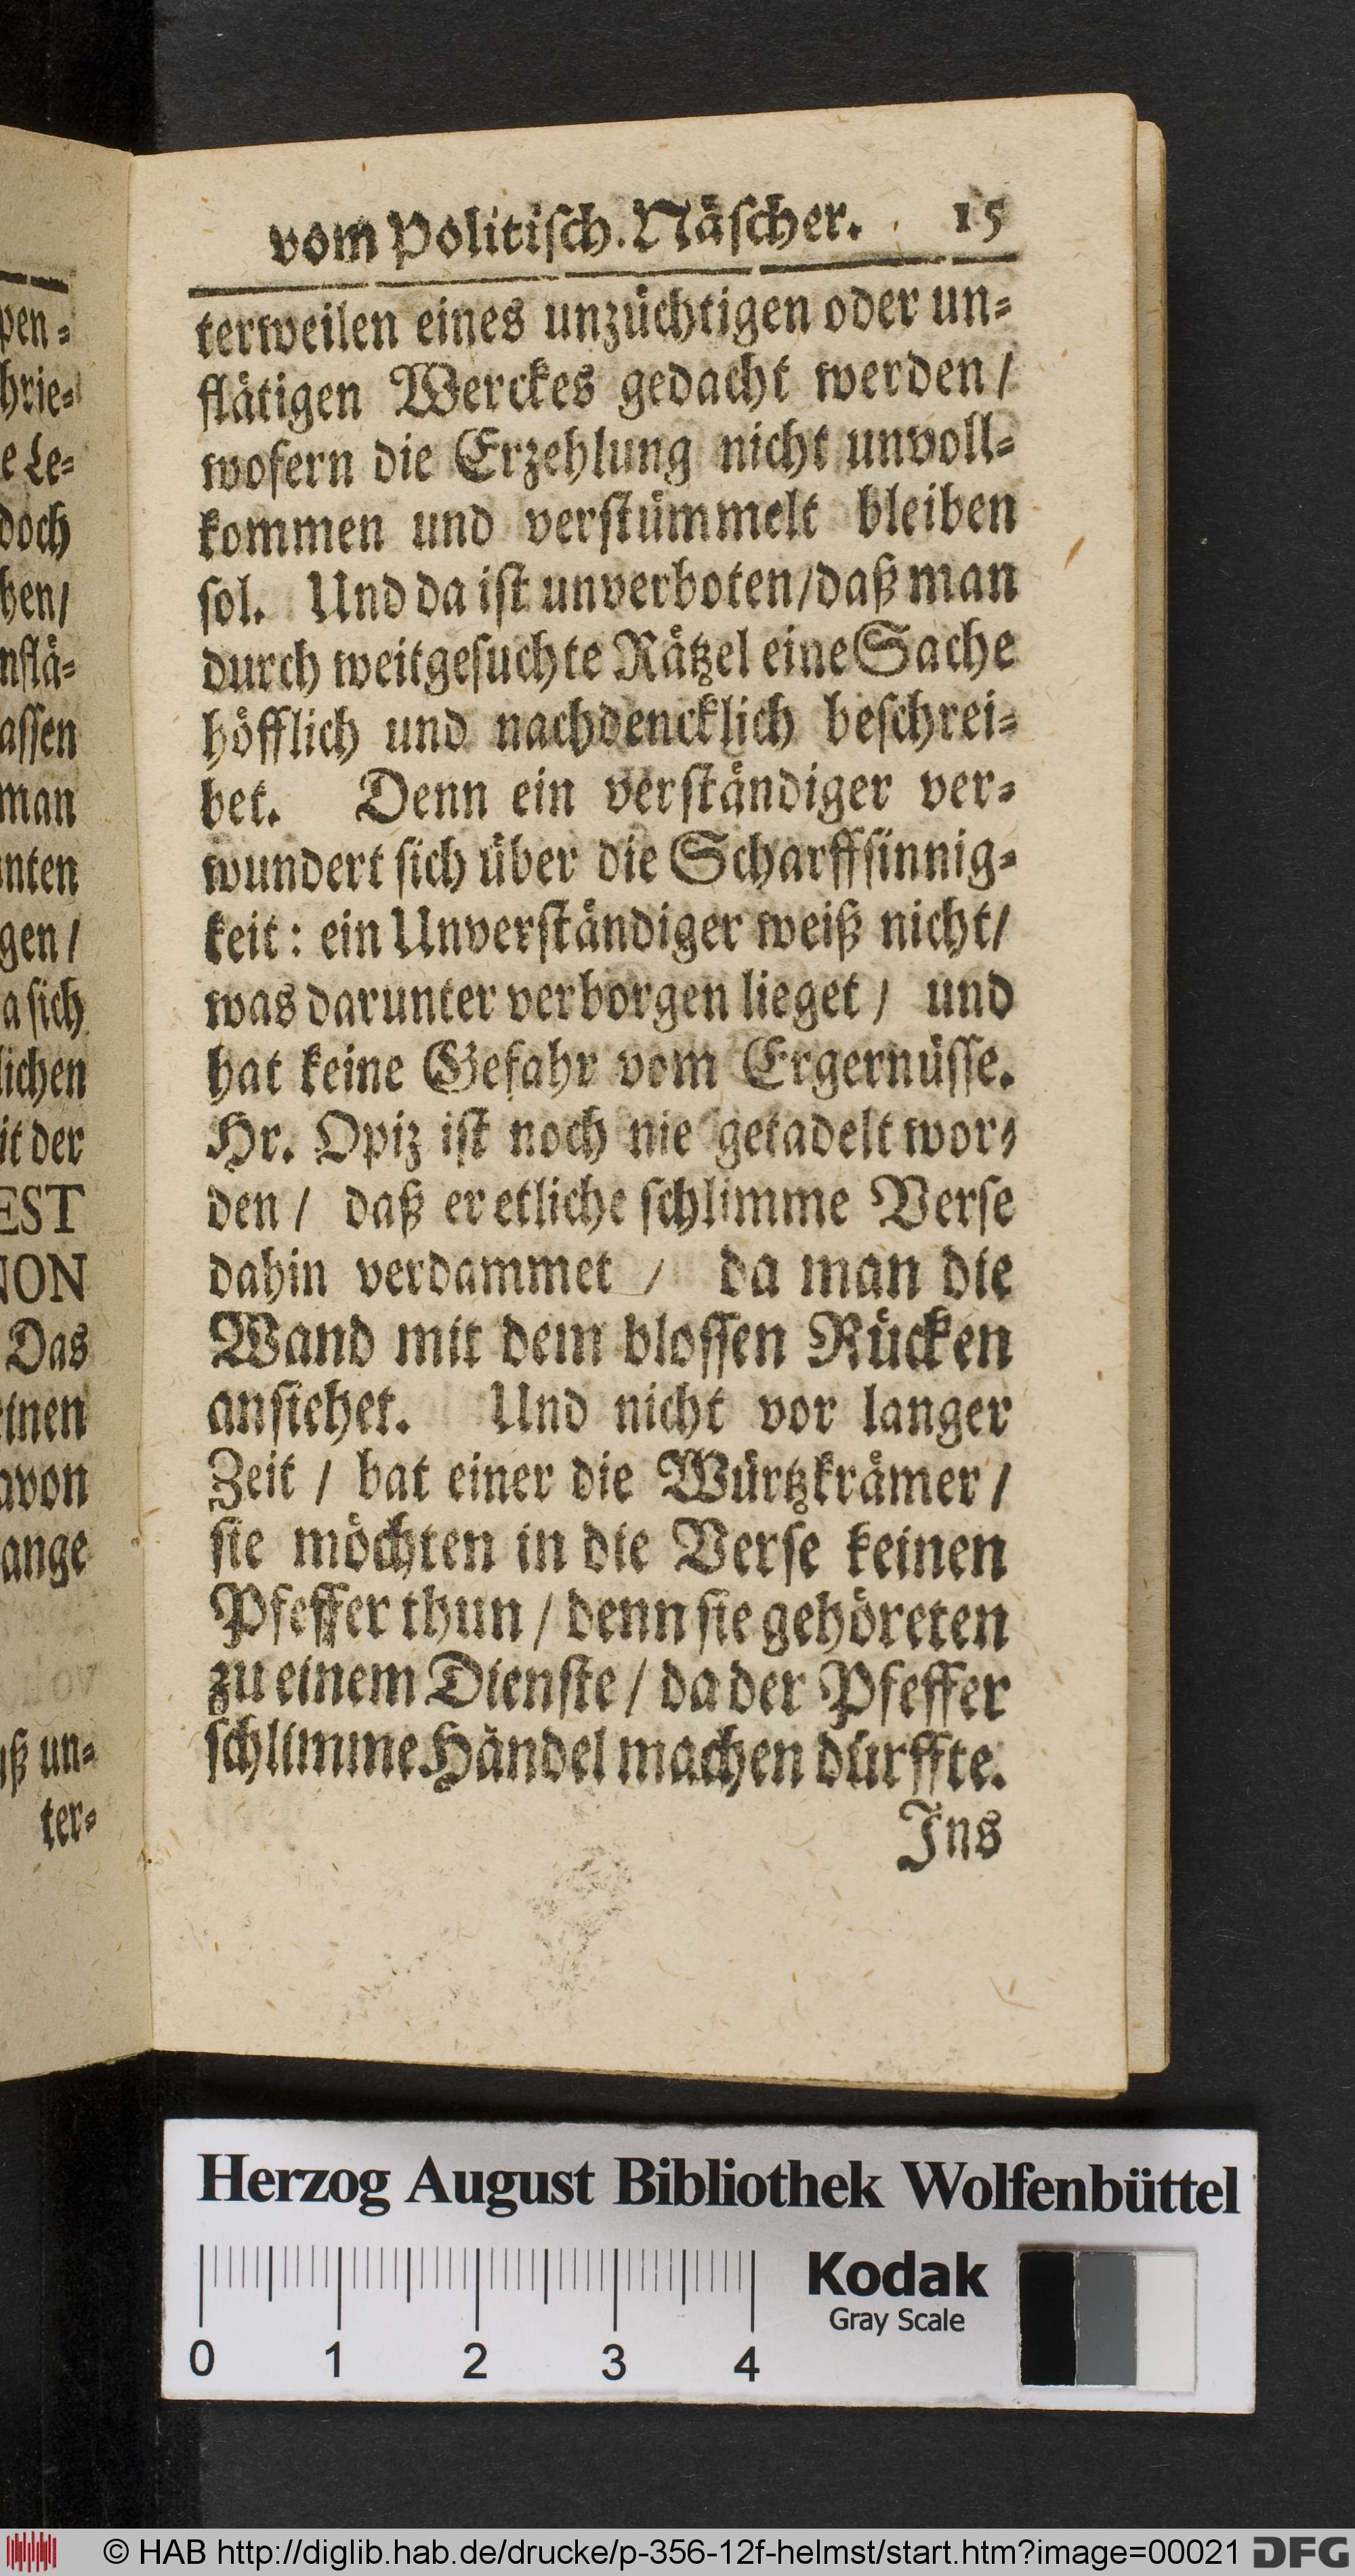 pen-
hrie-
e Le-
doch
hen/
nflä-
assen
man
nten
gen/
a sich
lichen
it der
EST
NON
Das
einen
avon
ange
uß un-
ter-
vom Politisch. Näscher. 15
terweilen eines unzüchtigen oder un-
flätigen Werckes gedacht werden/
wofern die Erzehlung nicht unvoll-
kommen und verstümmelt bleiben
sol. Und da ist unverboten/daß man
durch weitgesuchte Rätzel eine Sache
höfflich und nachdencklich beschrei-
bet. Denn ein verständiger ver-
wundert sich über die Scharffsinnig-
keit: ein Unverständiger weiß nicht/
was darunter verborgen lieget/ und
hat keine Gefahr vom Ergernüsse.
Hr. Opiz ist noch nie getadelt wor-
den/ daß er etliche schlimme Verse
dahin verdammet / da man die
Wand mit dem blossen Rücken
ansiehet. Und nicht vor langer
Zeit / bat einer die Würtzkrämer/
sie möchten in die Verse keinen
Pfeffer thun / denn sie gehöreten
zu einem Dienste / da der Pfeffer
schlimme Händel machen dürffte.
Ins
Herzog August Bibliothek Wolfenbüttel
Kodak
Gray Scale
0 1 2 3 4
© HAB http://diglib.hab.de/drucke/p-356-12f-helmst/start.htm?image=00021 DFG